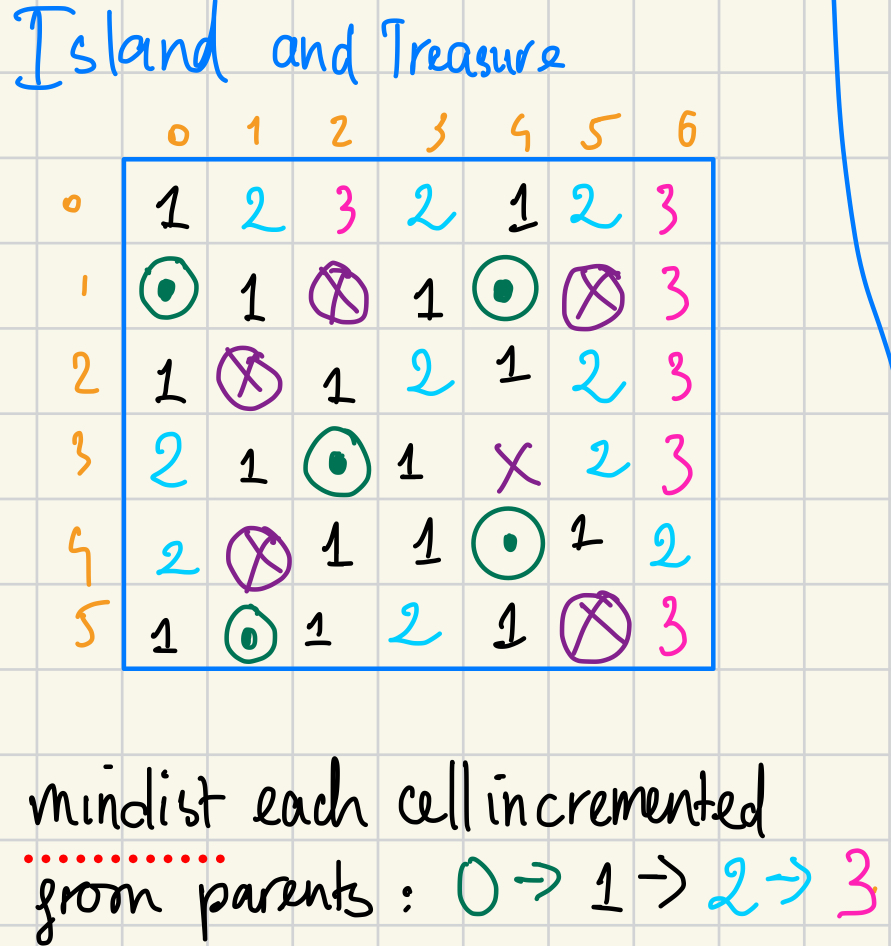 Island and Treasure
0 1 2 3 4 5 6
0 1 2 3 2 1 2 3
1 1 X 1 X 3
2 1 X 1 2 1 2 3
3 2 1 1 X 2 3
4 2 X 1 1 1 2
5 1 1 2 1 X 3
mindist each cell incremented
from parents : 0 -> 1 -> 2 -> 3